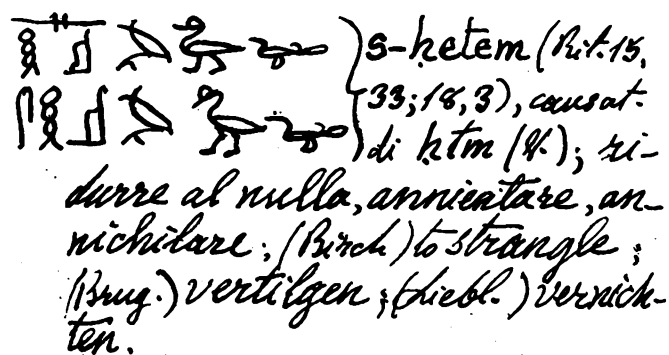 s-hetem (Rit. 15,
33; 18, 3), causat.
di htm (V.); ri-
durre al nulla, annientare, an-
nichilare; (Birch) to strangle;
(Brug.) vertilgen; (Liebl.) vernich-
ten.